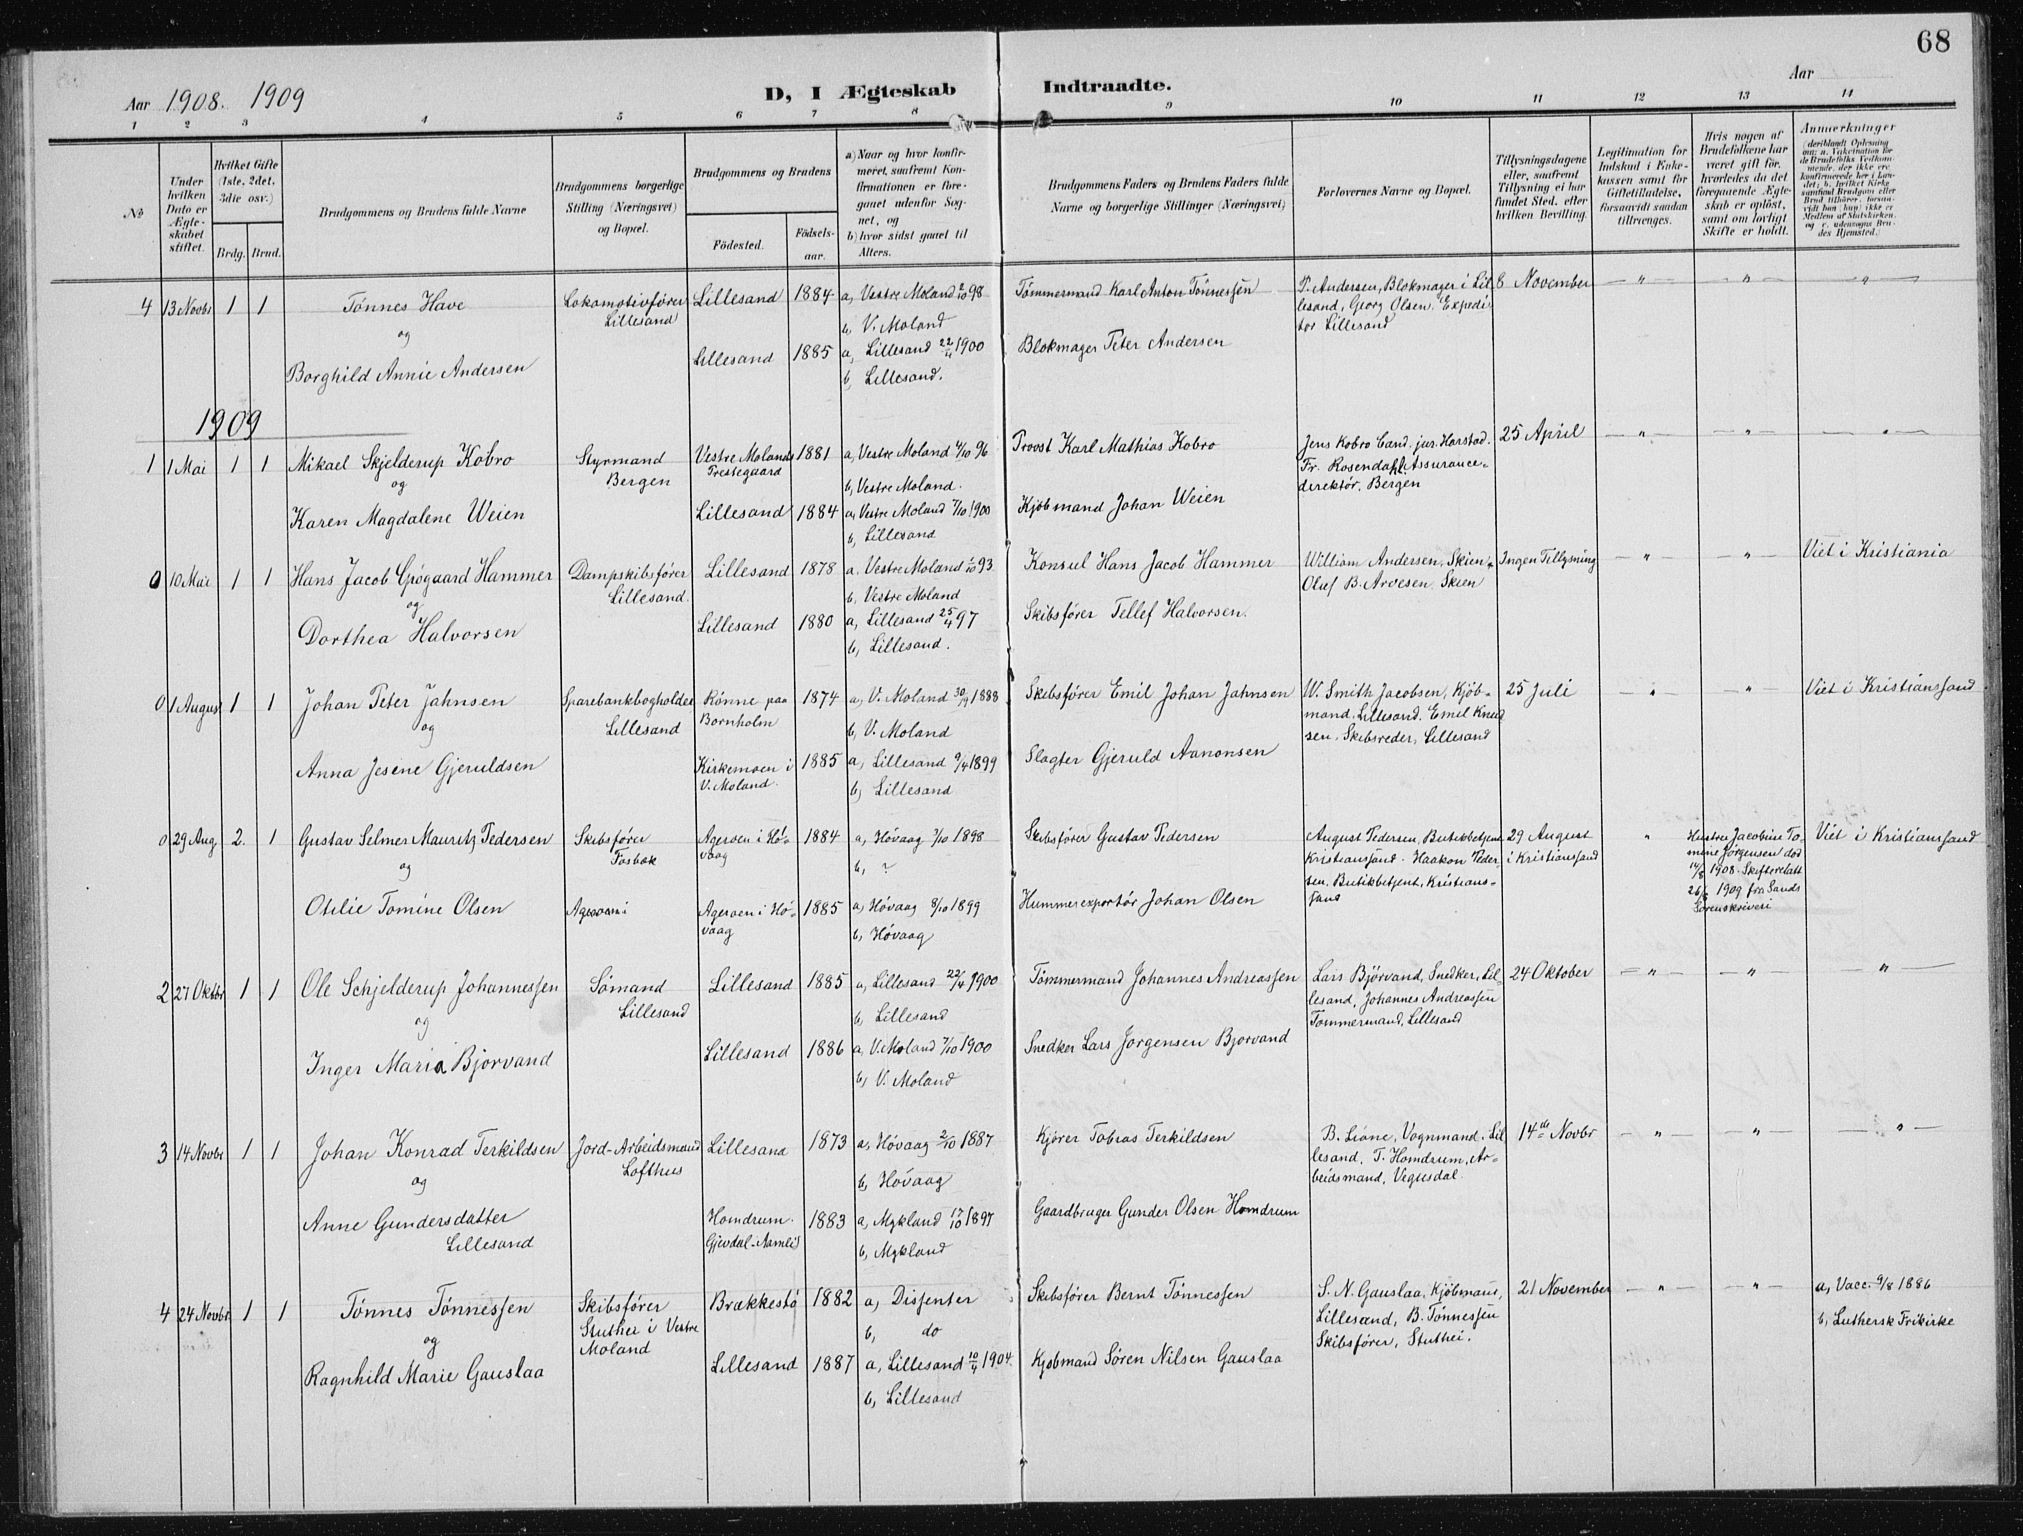 68
Aar 1908. 1909
D, I Ægteskab Indtraadte.
Aar
1 2 3 4 5 6 7 8 9 10 11 12 13 14
№
Under hvilken Dato er Ægteskabet stiftet.
Hvilket Gifte (1ste, 2det, 3die osv.)
Brdg. Brud.
Brudgommens og Brudens fulde Navne
Brudgommens borgerlige Stilling (Næringsvei) og Bopæl.
Brudgommens og Brudens
Födested.
Födselsaar.
a) Naar og hvor konfirmeret, saafremt Konfirmationen er foregaaet udenfor Sognet, og
b) hvor sidst gaaet til Alters.
Brudgommens Faders og Brudens Faders fulde Navne og borgerlige Stillinger (Næringsvei)
Forlovernes Navne og Bopæl.
Tillysningsdagene eller, saafremt Tillysning ei har fundet Sted, efter hvilken Bevilling.
Legitimation for Indskud i Enkekassen samt for Giftetilladelse, forsaavidt saadan tiltrænges.
Hvis nogen af Brudefolkene har været gift för, hvorledes da det foregaaende Ægteskab er oplöst, samt om lovligt Skifte er holdt.
Anmerkninger (deriblandt Oplysning om: a. Vakcination for de Brudefolks Vedkommende, der ikke ere konfirmerede her i Landet; b. hvilket Kirkesamfund Brudgom eller Brud tilhörer, forsaavidt han (hun) ikke er Medlem af Statskirken, og c. udensogns Brudes Hjemsted.)
4 13 Novbr 1 1 Tønnes Have
og
Borghild Annie Andersen
Lokomotivfører
Lillesand
Lillesand 1884
Lillesand 1885
a, Vestre Moland 2/10 98
b, V. Moland
a, Lillesand 22/4 1900
b, Lillesand.
Tømmermand Karl Anton Tønnessen
Blokmager Peter Andersen
P. Andersen, Blokmager i Lillesand, Georg Olsen, Expeditor Lillesand
8 November
— " — — " — — " —
1909
1 1 Mai 1 1 Mikael Skjelderup Kobro
og
Karen Magdalene Weien
Styrmand
Bergen
Vestre Molands Prestegaard 1881
Lillesand 1884
a, Vestre Moland 4/10 96
b, Vestre Moland.
a, Vestre Moland 7/10 1900
b, Lillesand
Provst Karl Mathias Kobro
Kjøbmand Johan Weien
Jens Kobro Cand. jur. Harstad.
Fr. Rosendahl Assurancedirektör, Bergen
25 April
— " — — " — "
0 10 Mai 1 1 Hans Jacob Hammer
og
Dorthea Halvorsen
Dampskibsfører
Lillesand.
Lillesand 1878
Lillesand 1880
a, Vestre Moland 1/10 93
b, Vestre Moland
a, Lillesand 25/4 97
b, Lillesand.
Konsul Hans Jacob Hammer
Skibsfører Tellef Halvorsen.
William Andersen, Skien
Oluf B. Arvesen, Skien
Ingen Tillysning
— " — — " —
Viet i Kristiania
0 1 August 1 1 Johan Peter Jahnsen
og
Anna Jesene Gjeruldsen
Sparebankbogholder
Lillesand
Rønne paa Bornholm 1874
Kirkemoen i V. Moland. 1885
a, V. Moland 30/9 1888
b, V. Moland
a, Lillesand 9/4 1899
b, Lillesand
Skibsfører Emil Johan Jahnsen
Slagter Gjeruld Aanonsen
W. Smith Jacobsen, Kjøbmand, Lillesand. Emil Knudsen, Skibsreder, Lillesand
25 Juli
— " — — " —
Viet i Kristianssand
0 29 Aug 2. 1 Gustav Selmer Mauritz Pedersen
og
Otilie Tomine Olsen
Skibsfører
Fosbæk
Ageroen i
Ageroen i Høvaag 1884
Ageroen i Høvaag 1885
a, Høvaag 2/10 1898
b, ?
a, Høvaag 8/10 1899
b, Høvaag
Skibsfører Gustav Pedersen
Hummerexportör Johan Olsen
August Pedersen, Butikbetjent Kristianssand. Haakon Pedersen, Butikbetjent, Kristianssand
29 August i Kristianssand
"
Hustru Jacobine Tomine Jørgensen död 14/8 1908. Skifteratt 26/8 1909 fra Sands Sorenskriveri
Viet i Kristianssand
2 27 Oktbr 1 1 Ole Schjelderup Johannessen
og
Inger Maria Bjørvand
Sømand
Lillesand
Lillesand 1885
Lillesand 1886
a, Lillesand 22/4 1900
b, Lillesand
a, V. Moland 7/10 1900
b, V. Moland
Tømmermand Johannes Andreassen
Snedker Lars Jørgensen Bjorvand
Lars Bjørvand, Snedker, Lillesand, Johannes Andreassen Tømmermand, Lillesand
24 Oktober
— " — — " — "
3 14 Novbr 1 1 Johan Konrad Terkildsen
og
Anne Gundersdatter
Lillesand
Jord-Arbeidsmand
Lofthus
Lillesand 1873
Homdrum. Gjevdal-Aamli 1883
a, Høvaag 2/10 1887
b, Høvaag
a, Mykland 17/10 1897
b, Mykland
Kjörer Tobias Terkildsen
Gaardbruger Gunder Olsen Homdrum
B. Liøne, Vognmand, Lillesand, T. Homdrum, Arbeidsmand, Vegusdal.
14de Novbr
— " — — " — — " —
4 24 Novbr 1 1 Tønnes Tønnessen
og
Ragnhild Marie Gauslaa
Skibsfører
Stuthei i Vestre Moland
Brækkestø 1882
Lillesand 1887
a, Dissenter
b, do
a, Lillesand 10/4 1904
b, Lillesand
Skibsfører Bernt Tønnessen
Kjøbmand Søren Nilsen Gauslaa
S. N. Gauslaa, Kjøbmand, Lillesand, B. Tønnessen Skibsfører, Stuthei.
21 November
— " — — " —
a, Vacc. 9/8 1886
b, Luthersk Frikirke